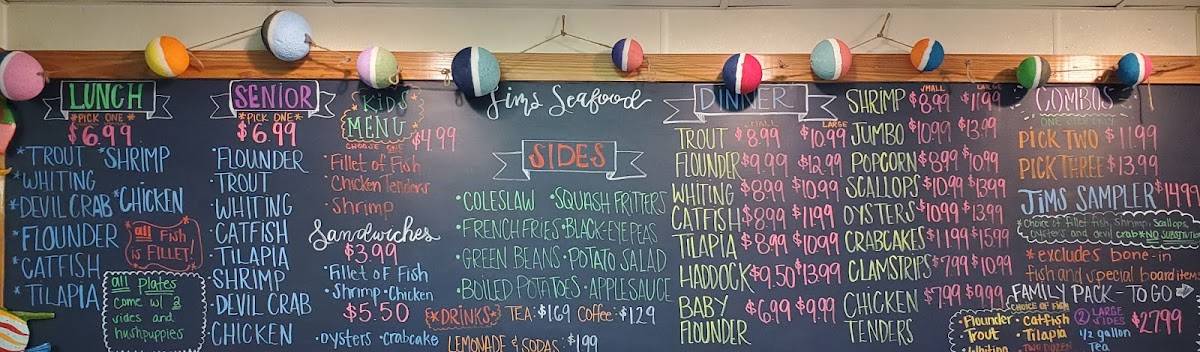 LUNCH
*PICK ONE*
$6.99
*TROUT *SHRIMP
*WHITING
*DEVIL CRAB *CHICKEN
*FLOUNDER
*CATFISH
*TILAPIA
all Fish
is FILLET!
all plates
come w/ 2
sides and
hushpuppies
SENIOR
*PICK ONE*
$6.99
·FLOUNDER
·TROUT
·WHITING
·CATFISH
·TILAPIA
·SHRIMP
·DEVIL CRAB
·CHICKEN
KIDS
MENU
CHOOSE ONE
$4.99
·Fillet of Fish
·Chicken Tenders
·Shrimp
Sandwiches
$3.99
·Fillet of Fish
·Shrimp ·Chicken
$5.50
·oysters ·crabcake
Jims Seafood
SIDES
·COLESLAW ·SQUASH FRITTERS
·FRENCH FRIES ·BLACK-EYE PEAS
·GREEN BEANS ·POTATO SALAD
·BOILED POTATOES ·APPLESAUCE
*DRINKS* TEA: $1.69 Coffee: $1.29
LEMONADE & SODAS: $1.99
DINNER
SMALL LARGE
TROUT $8.99 $10.99
FLOUNDER $9.99 $12.99
WHITING $8.99 $10.99
CATFISH $8.99 $11.99
TILAPIA $8.99 $10.99
HADDOCK $9.50 $13.99
BABY
FLOUNDER $6.99 $9.99
SMALL LARGE
SHRIMP $8.99 $11.99
JUMBO $10.99 $13.99
POPCORN $8.99 $10.99
SCALLOPS $10.99 $13.99
OYSTERS $10.99 $13.99
CRABCAKES $11.99 $15.99
CLAMSTRIPS $7.99 $10.99
CHICKEN
TENDERS $7.99 $9.99
COMBOS
PICK TWO $11.99
PICK THREE $13.99
JIMS SAMPLER $14.99
*Choice of Fillet Fish, Shrimp, Scallops,
oysters and devil crab *NO SUBSTITUTION
*excludes bone-in
fish and special board items
FAMILY PACK-TO GO
CHOICE OF FISH
·Flounder ·Catfish
·Trout ·Tilapia
·Whiting
② LARGE
SIDES
1/2 gallon
Tea
$27.99